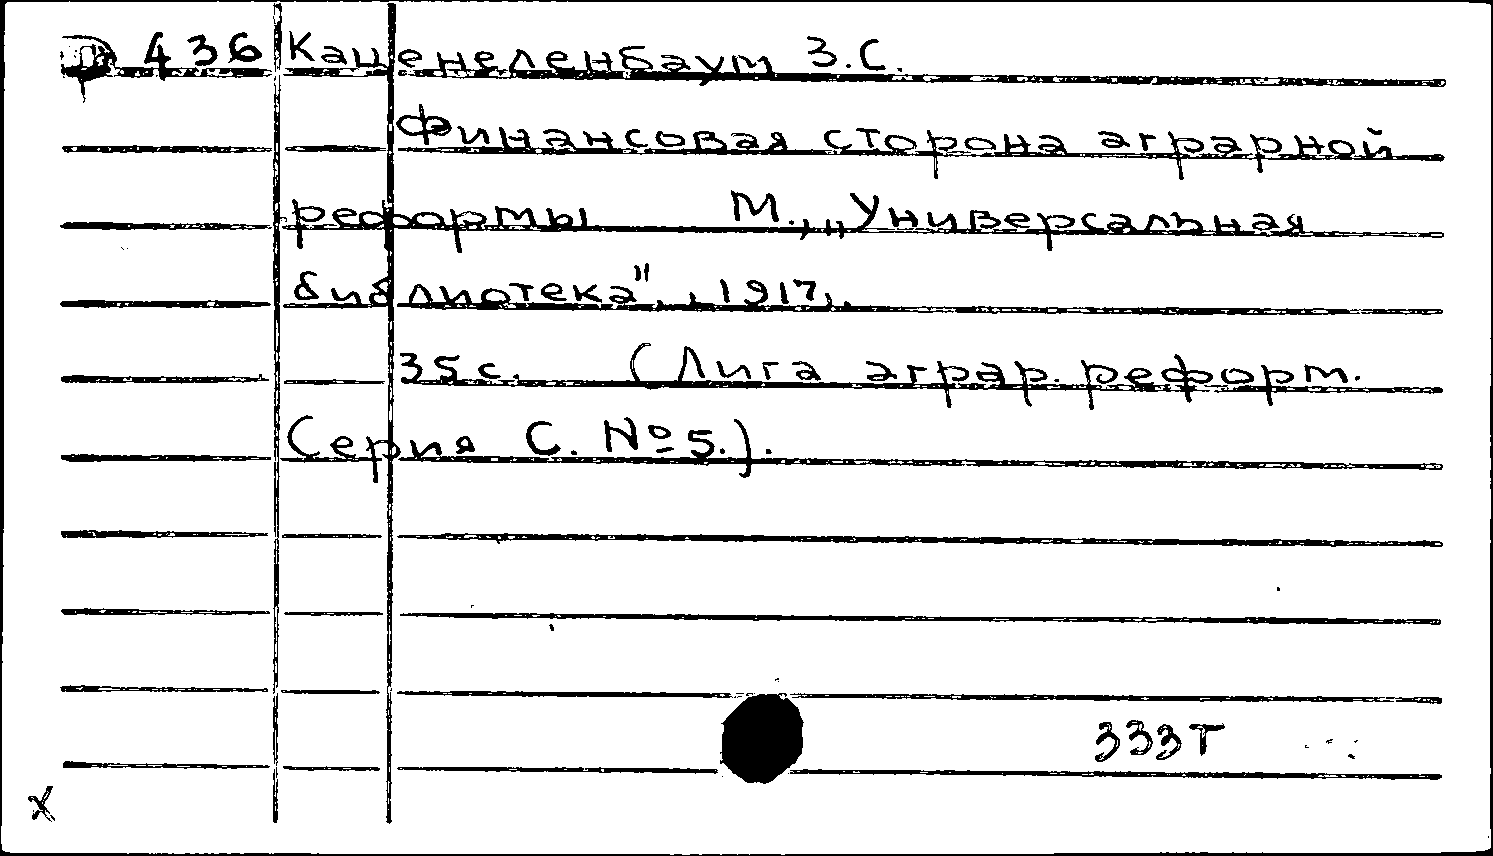 436 Каценеленбаум З.С.
Финансовая сторона аграрной
реформы М., „Универсальная
библиотека", 1917.
35 с. (Лига аграр. реформ.
Серия С. № 5.).
333Т
x